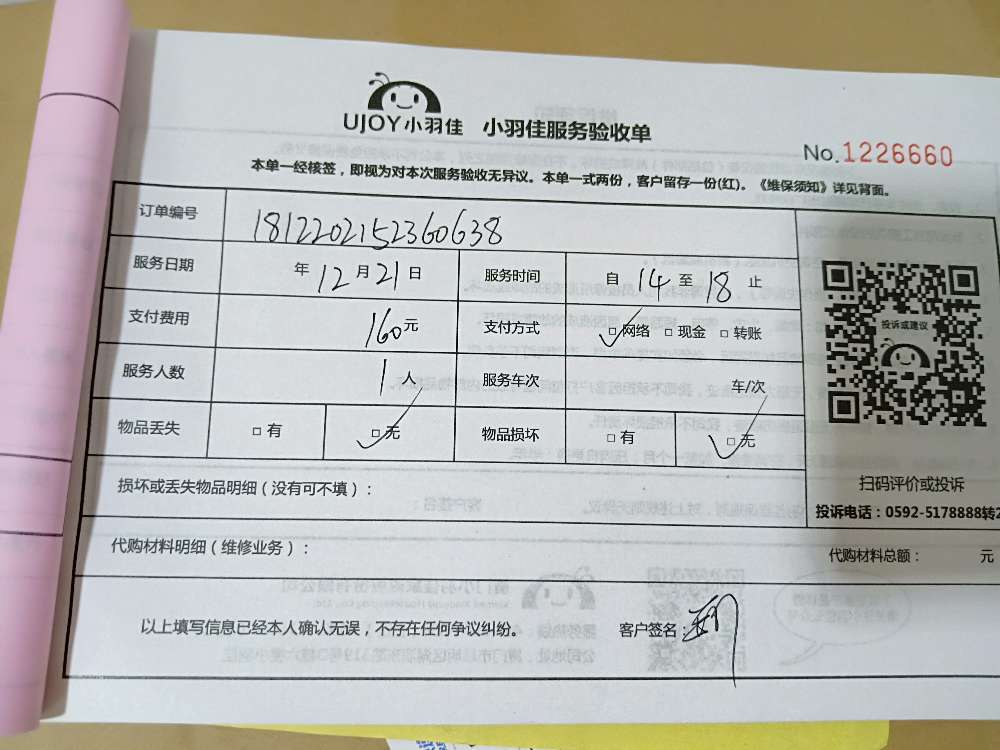 UJOY小羽佳 小羽佳服务验收单
No.1226660
本单一经核签，即视为对本次服务验收无异议。本单一式两份，客户留存一份(红)。《维保须知》详见背面。
订单编号 181220215236 0638
服务日期 年 12 月 21 日 服务时间 自 14 至 18 止
支付费用 160元 支付方式 ☑网络 □现金 □转账
服务人数 1 人 服务车次 车/次
物品丢失 □有 ☑无 物品损坏 □有 ☑无
投诉或建议
扫码评价或投诉
投诉电话：0592-5178888转2
损坏或丢失物品明细（没有可不填）：
代购材料明细（维修业务）： 代购材料总额： 元
以上填写信息已经本人确认无误，不存在任何争议纠纷。 客户签名：